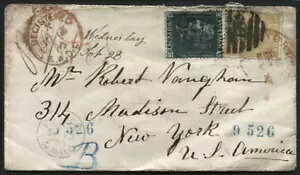 REGISTERED
Wednesday
Feb 23
Mr Robert Vaughan
314 Madison Street
New York
U.S. America
9 526
9 526
B